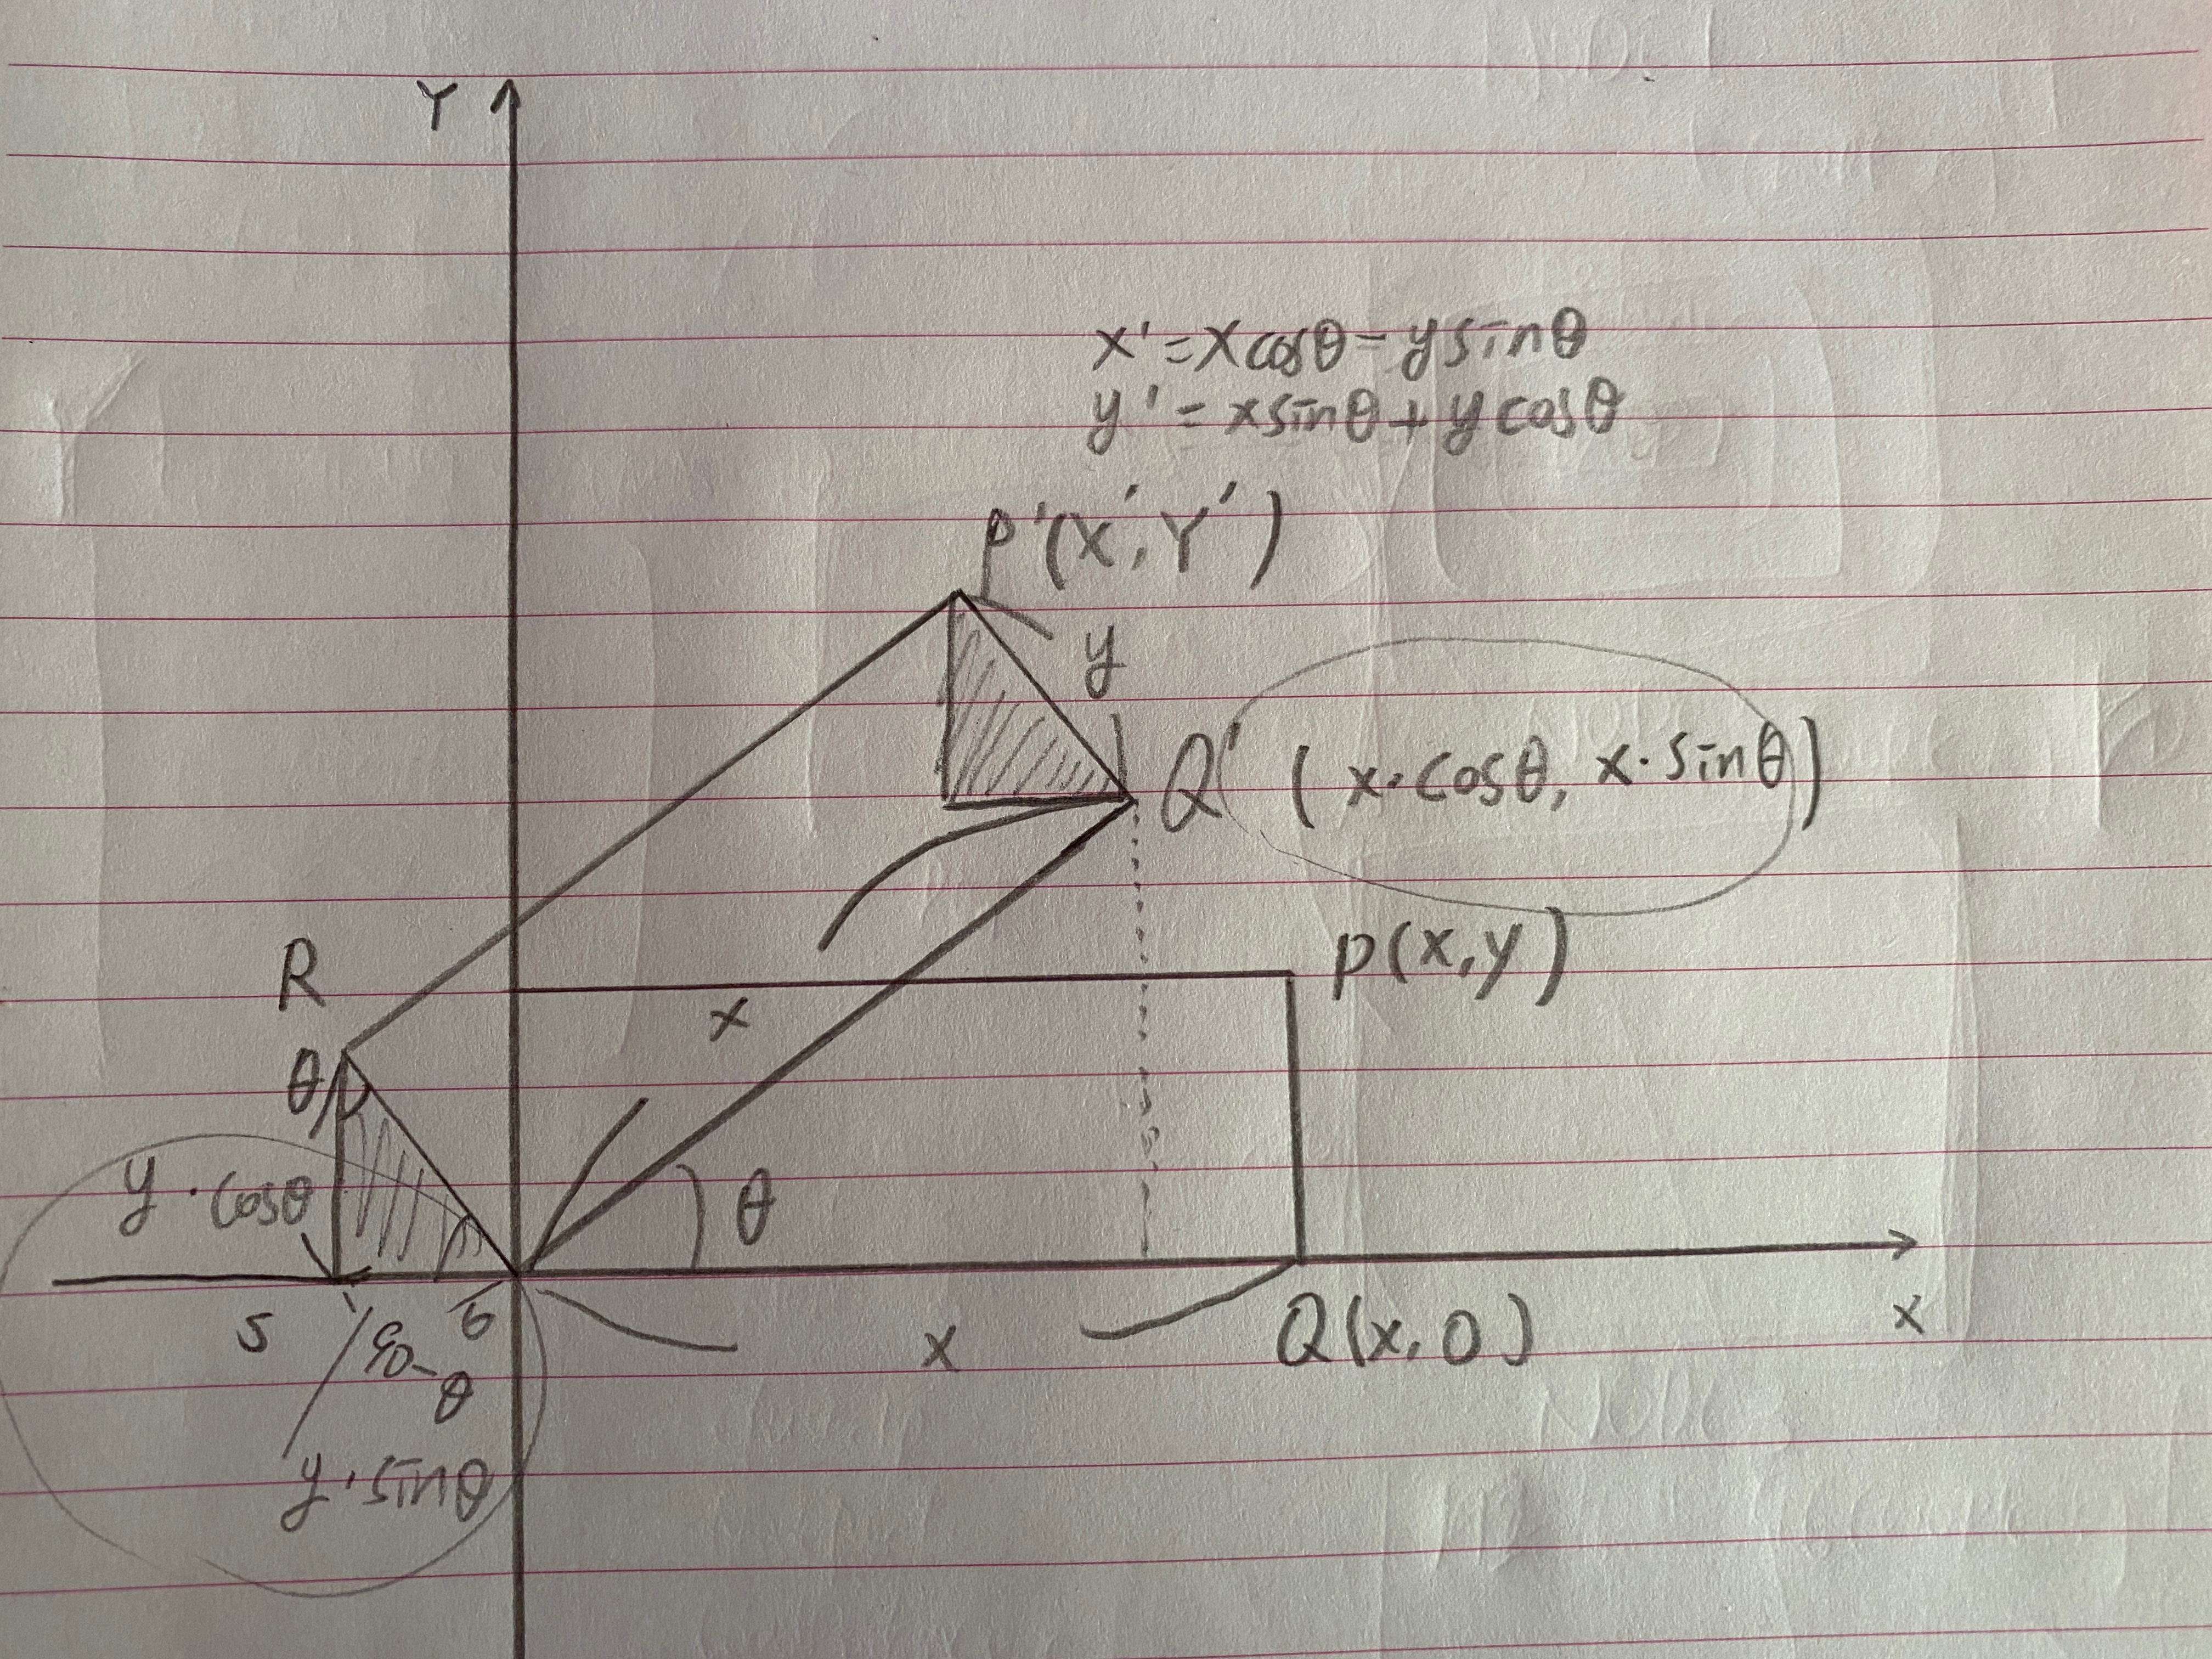 Y
x'=xcosθ-ysinθ
y'=xsinθ+ycosθ
P'(X',Y')
y
Q' (x·cosθ, x·sinθ)
P(x,y)
R
x
θ
y·cosθ
θ
S
90-θ
x
Q(x,0)
X
y·sinθ